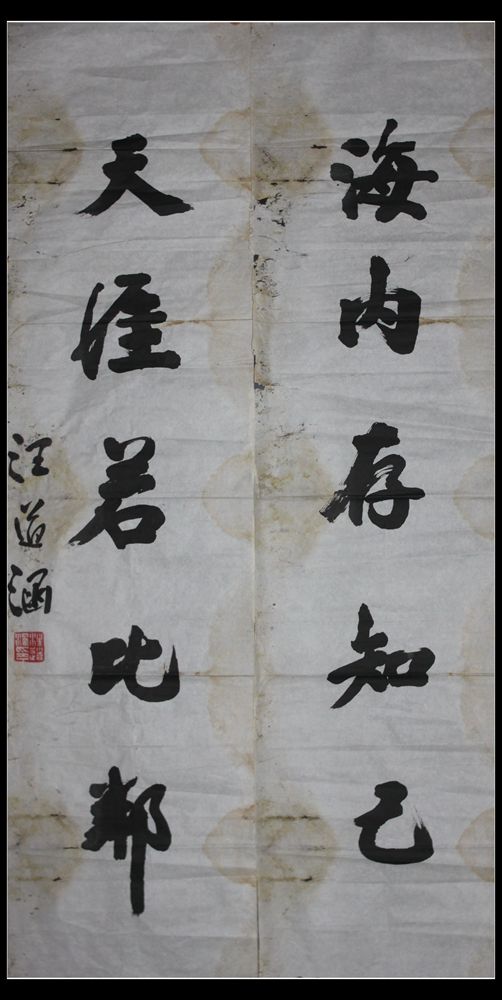 海内存知己
天涯若比鄰
汪道涵